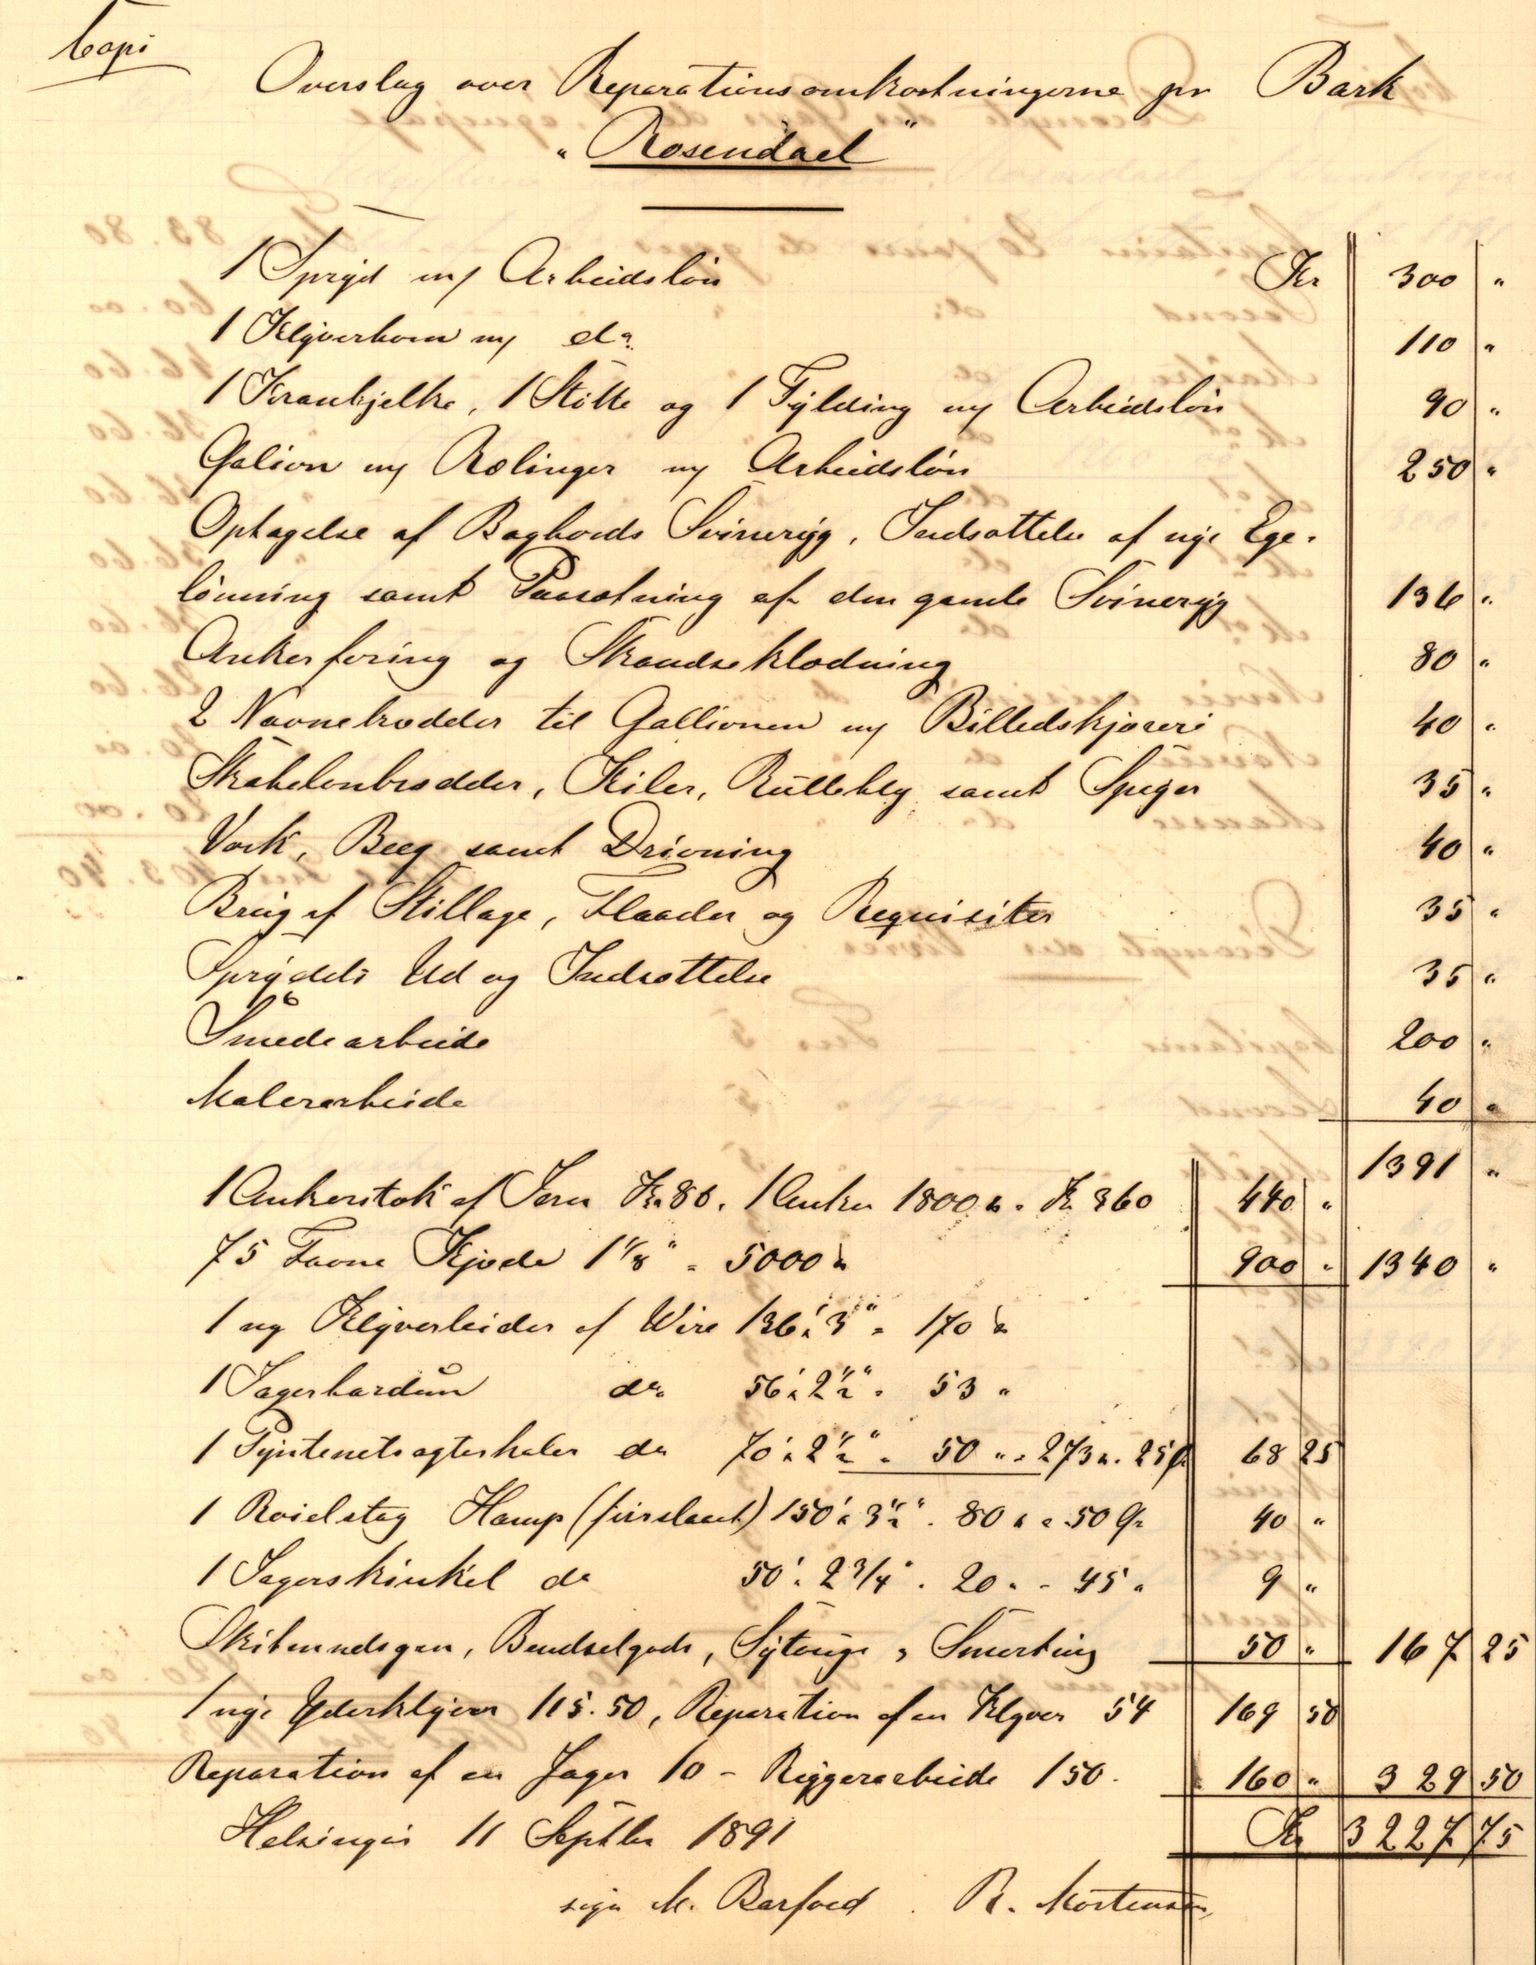 Copi
Overslag over Reparationsomkostningerne pr Bark
"Rosendael"
1 Spryd m/ Arbeidsløn Kr 300 "
1 Klyverbom m/ do 110 "
1 Kranbjelke, 1 Støtte og 1 Fylding m/ Arbeidsløn 90 "
Galion m/ Rælinger m/ Arbeidsløn 250 "
Optagelse af Bagbords Svineryg, Indsættelse af nye Ege-
lønning samt Paasætning af den gamle Svineryg 136 "
Ankerforing og Skandseklædning 80 "
2 Navnebrædder til Gallionen m/ Billedskjæreri 40 "
Skabelonbrædder, Kiler, Rullebly samt Spiger 35 "
Værk, Beeg samt Drivning 40 "
Brug af Stillage, Flaader og Requisiter 35 "
Spryddets Ud og Indsættelse 35 "
Smedearbeide 200 "
Malerarbeide 40 "
1391 "
1 Ankerstok af Jern Kr 80. 1 Anker 1800 lb. Kr 360 440 "
75 Favne Kjæde 1 1/8" = 5000 lb 900 " 1340 "
1 ny Klyverleider af Wire 136' à 3" = 170 lb
1 Jagerbardun do 56' à 2 1/2" = 53 "
1 Pyntenetsagterhaler do 70' à 2 1/2" = 50 " = 273 lb. 25 Ør 68 25
1 Roielstag Hamp (fiirslaaet) 150' à 3 1/2" = 80 lb à 50 Ør 40 "
1 Jagerskinkel do 50' à 2 3/4" = 20 " - 45 " 9 "
Skibmandsgarn, Bendselgods, Sytougs & Smerting 50 " 167 25
1 nye Yderklyver 115.50, Reparation af en Klyver 54 169 50
Reparation af en Jager 10 - Riggerarbeide 150. 160 " 329 50
Helsingør 11 Septbr 1891 Kr 3227 75
sign M. Barfoed . R. Mortensen